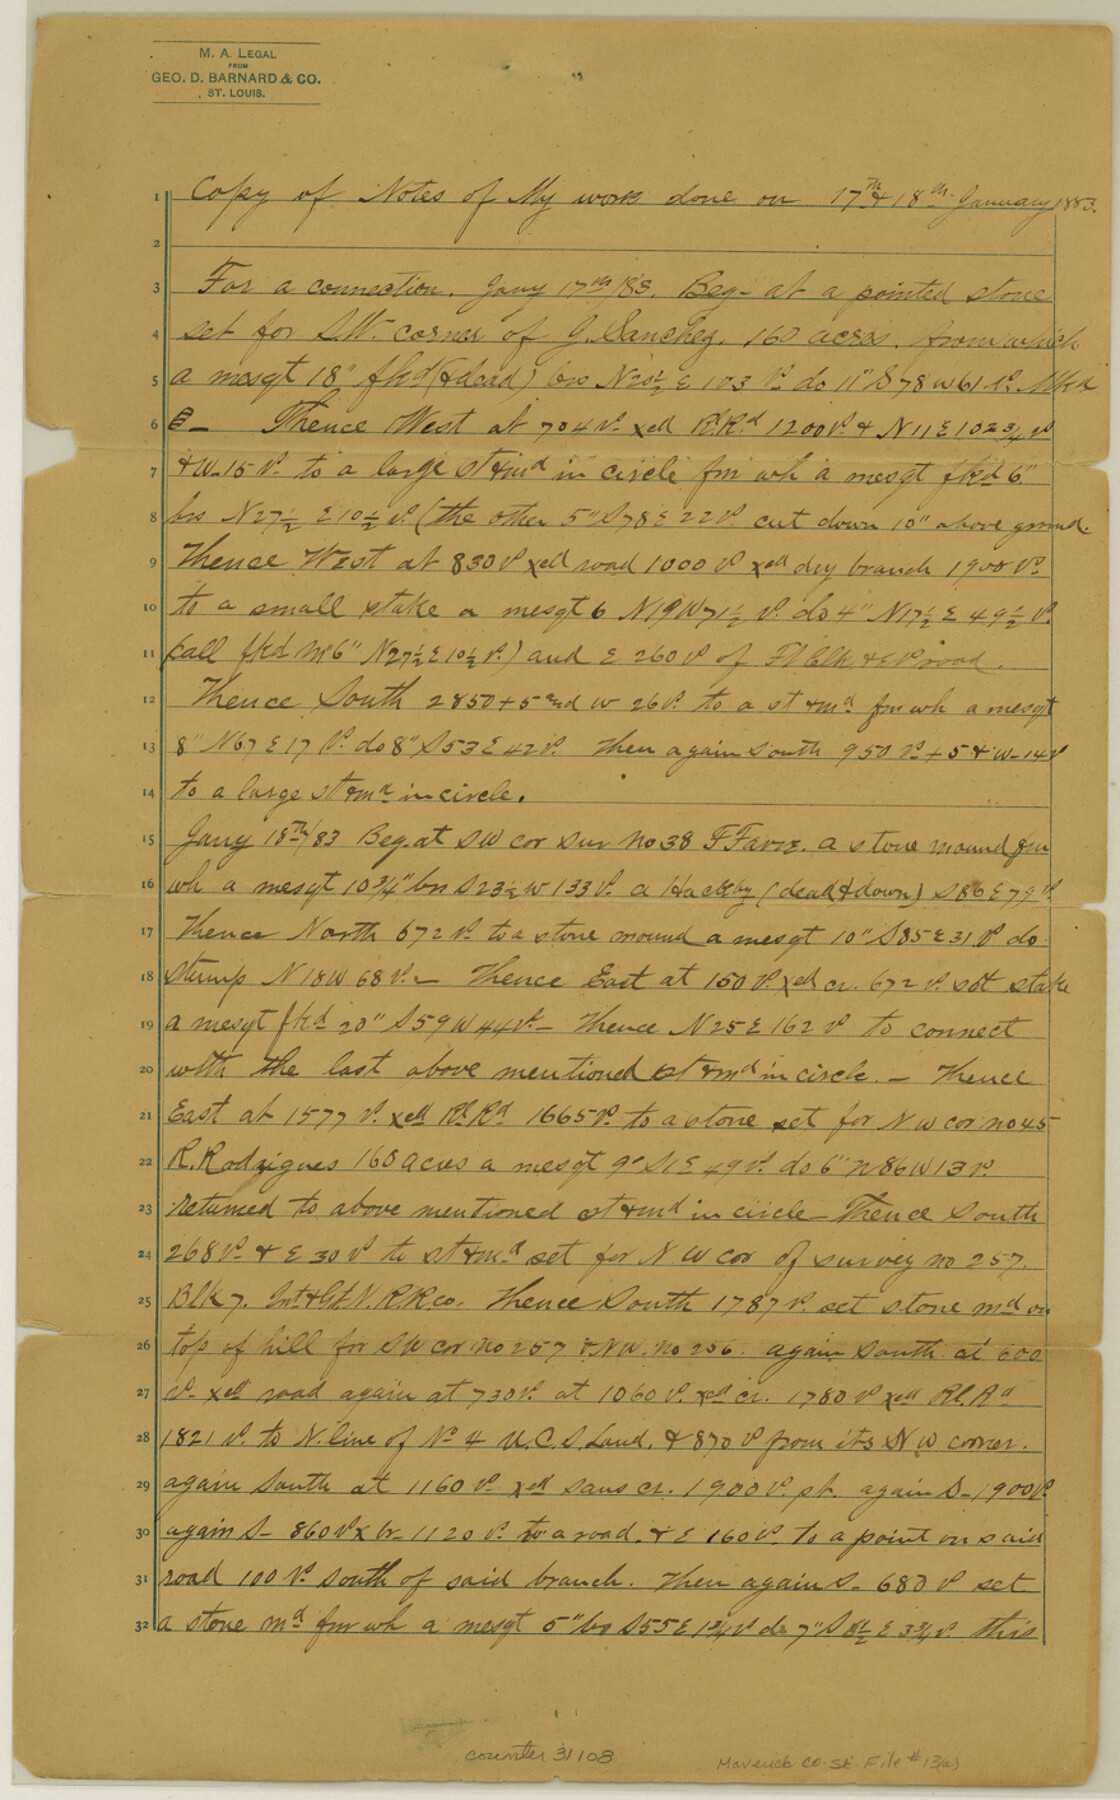 M. A. LEGAL
FROM
GEO. D. BARNARD & CO.
ST. LOUIS.
1 Copy of Notes of My work done on 17th & 18th January 1883.
2
3 For a connection. Jany 17th/83. Beg- at a pointed stone
4 set for S.W. corner of J. Sanchez. 160 acres. from which
5 a mesqt 18" fkd (& dead) brs N25½ E 103 vs do 11" S78 W 61 vs. Mkd
6 Thence West at 704 vs. xed R.Rd 1200 vs. & N 11 E 102 3/4 vs
7 & W-15 vs. to a large st & md in circle fm wh a mesqt fkd 6"
8 brs N27½ E 10½ vs. (the other 5" S78 E 22 vs. cut down 10" above ground.
9 Thence West at 830 vs xed road 1000 vs xed dry branch 1900 vs.
10 to a small stake a mesqt 6 N19 W 71½ vs. do 4" N17½ E 49½ vs.
11 (call fkd m 6" N27½ E 10½ vs.) and E 260 vs of Ft Clk & E P road.
12 Thence South 2850 + 5 and W 26 vs. to a st & md fm wh a mesqt
13 8" N67 E 17 vs. do 8" S53 E 42 vs. Then again South 950 vs. + 5 & W-14 vs
14 to a large st & md in circle.
15 Jany 18th/83 Beg. at SW cor Sur No 38 F Farr. a stone mound fm
16 wh a mesqt 10 3/4" brs S23½ W 133 vs. a Hackby (dead & down) S86 E 79 vs.
17 Thence North 672 vs. to a stone mound a mesqt 10" S85 E 31 vs do
18 stump N 18 W 68 vs.- Thence East at 150 vs. xed cr. 672 vs. set stake
19 a mesqt fkd 20" S59 W 44 vs.- Thence N25 E 162 vs to connect
20 with the last above mentioned st & md in circle. - Thence
21 East at 1577 vs. xed Rl Rd 1665 vs. to a stone set for N W cor no 45
22 R. Rodzigues 160 acres a mesqt 9" S1 E 49 vs. do 6" N 86 W 13 vs.
23 returned to above mentioned st & md in circle - Thence South
24 268 vs. & E 30 vs to st & md set for N W cor of survey no 257.
25 Blk 7. Int & Gt N. R R co. Thence South 1787 vs. set stone md on
26 top of hill for SW cor No 257 & NW. no 256. again South at 600
27 vs. xed road again at 730 vs. at 1060 vs. xed cr. 1780 vs xed Rl. Rd
28 1821 vs. to N. line of No 4 U. C. S. Land. & 870 vs from its N W corner.
29 again South at 1160 vs. xed saus cr. 1900 vs. pt. again S- 1900 vs.
30 again S- 860 vs x br- 1120 vs. to a road. & E 160 vs. to a point on said
31 road 100 vs. South of said branch. Then again S- 680 vs set
32 a stone md fm wh a mesqt 5" brs S55 E 1 3/4 vs do 7" S E 3 3/4 vs. this
counter 31108
Maverick Co. Sk. File #13(a)